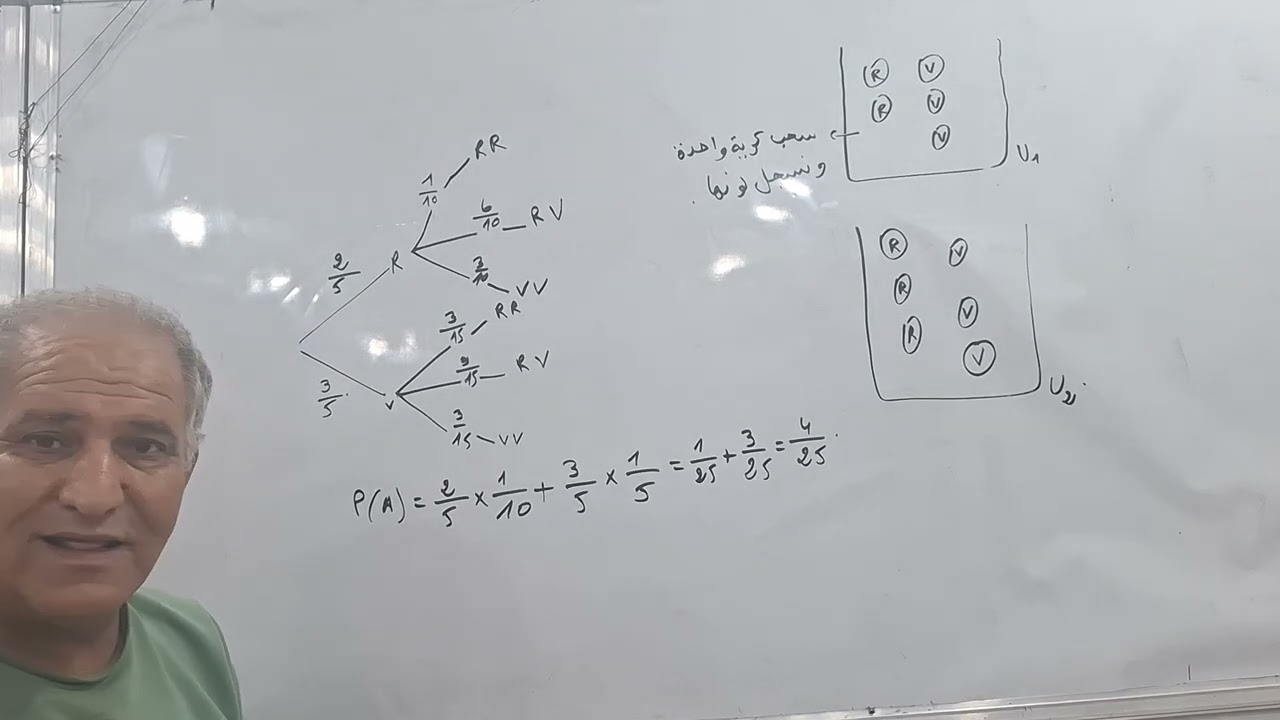 R V
R V
V
U1
سحب كرية واحدة
ونسجل لونها.
R V
R
V
R
V
U2
2/5 R
1/10 RR
6/10 RV
3/10 VV
3/5 V
3/15 RR
9/15 RV
3/15 VV
P(A) = 2/5 × 1/10 + 3/5 × 1/5 = 1/25 + 3/25 = 4/25.